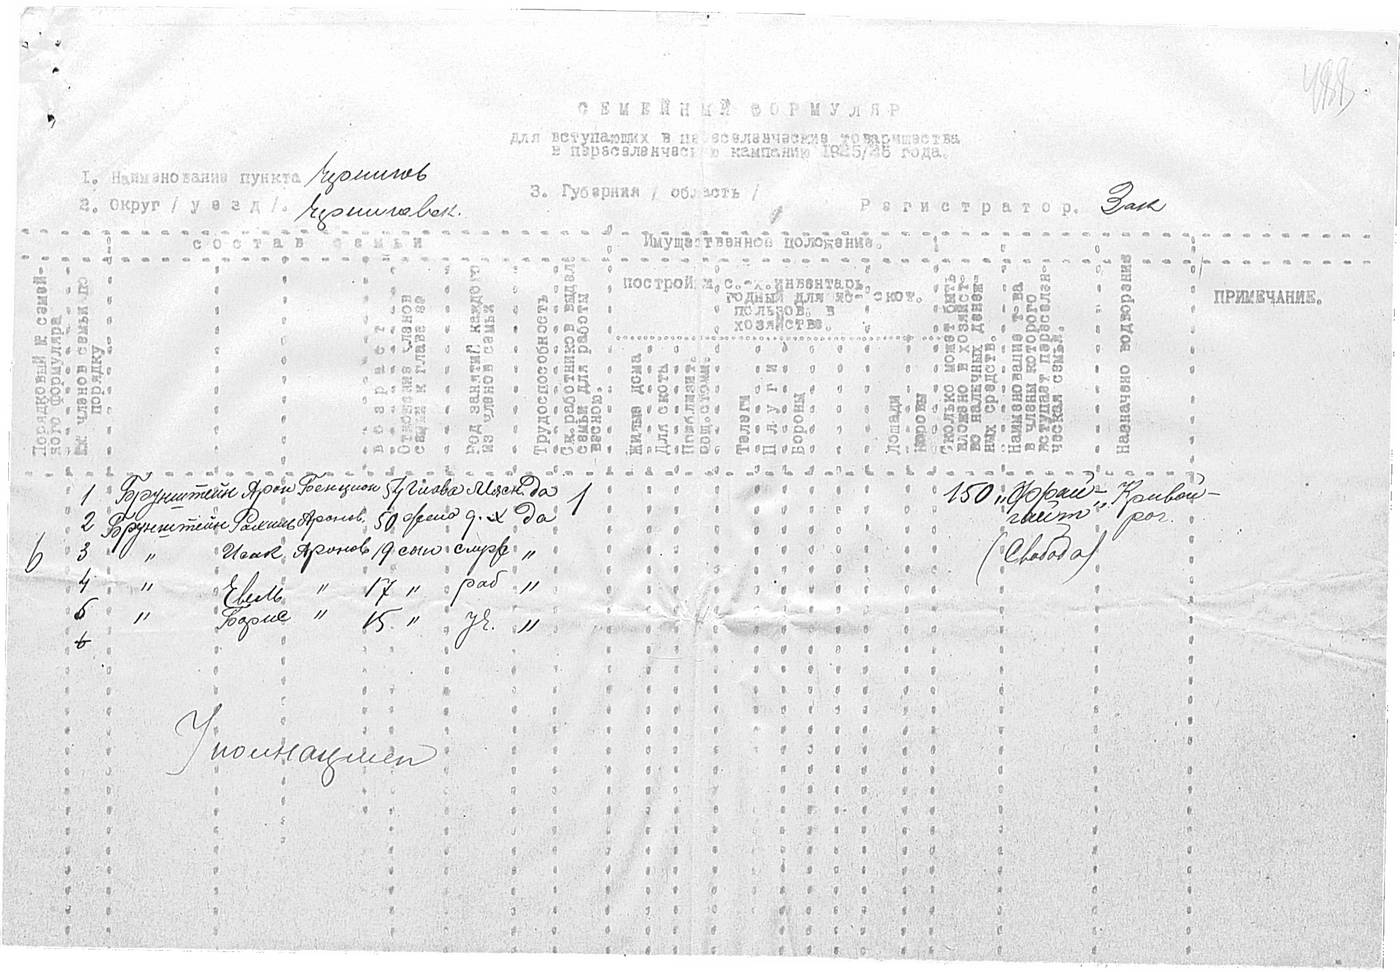 488
СЕМЕЙНЫЙ ФОРМУЛЯР
для вступающих в переселенческие товарищества
в переселенческую кампанию 1925/26 года.
1. Наименование пункта Чернигов
2. Округ / уезд /. Черниговск.
3. Губерния / область /
Регистратор. Зак
состав семьи
Имущественное положение.
Порядковый № семейного формуляра
№№ членов семьи по порядку
возраст
Отношение членов семьи к главе ее
Род занятий каждого из членов семьи
Трудоспособность
Ск. работников выдел. семьи для работы весною.
построй ж. с.-х. инвентарь годный для использов. в хозяйстве. скот.
Жилые дома
Для скота
Приблизит. общ. стоим.
Телеги
Плуги
Бороны
Лошади
Коровы
Сколько может быть вложено в хозяйство наличных денежных средств.
Наименование т-ва в члены которого вступает переселенческая семья.
Назначено водворение
ПРИМЕЧАНИЕ.
1 Брунштейн Арон Бенцион 54 Глава Мясн. да 1 150 „Фрай- Кривой-
2 Брунштейн Аронов. 50 д. х да гайт" рог.
6 3 " Исак Аронов 19 сын " (Свобода)
4 " Евель " 17 " раб "
5 " Борис " 15. " уч. "
6
Уполнацмен